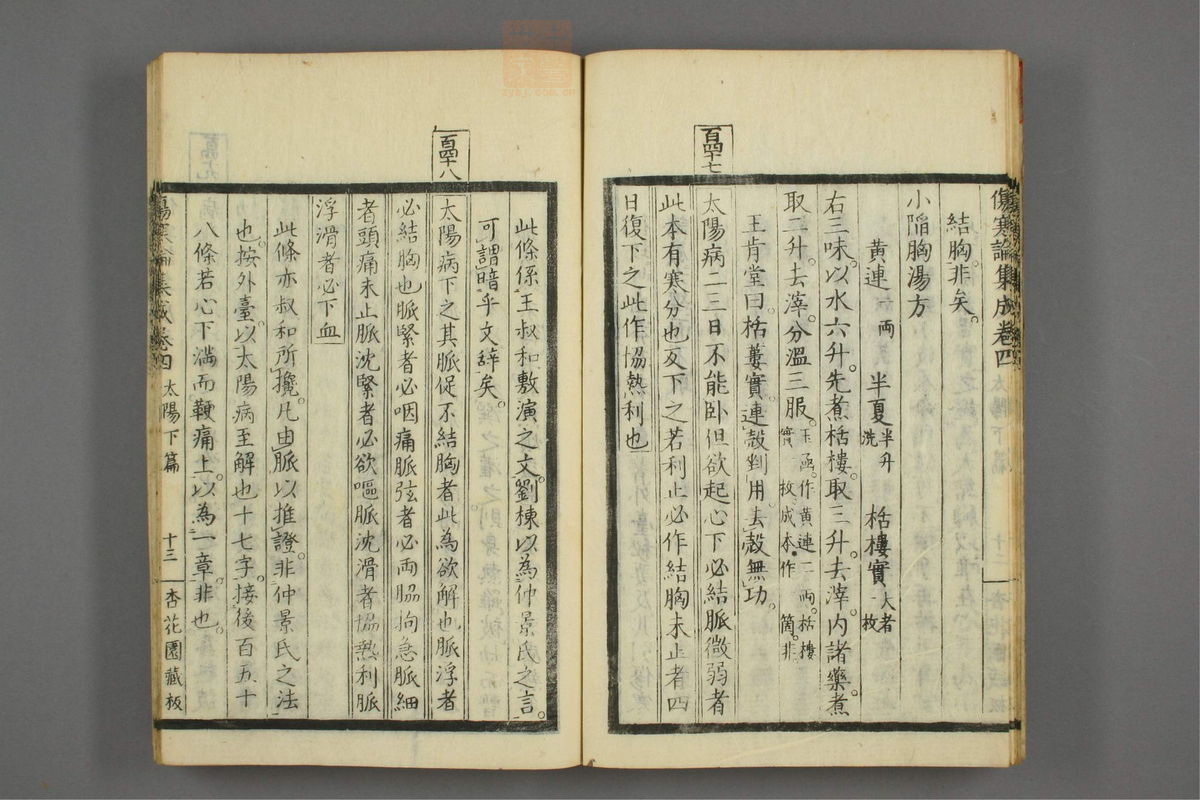 傷寒論集成卷四
結胸。非矣。
小陷胸湯方
黃連一兩 半夏半升洗 栝樓實大者一枚
右三味。以水六升。先煮栝樓。取三升。去滓。內諸藥。煮
取二升。去滓。分溫三服。玉函。作黃連二兩。栝樓實一枚。成本。作一箇。非。
王肯堂曰。栝蔞實。連殼剉用。去殼無功。
百四十七
太陽病二三日不能臥但欲起心下必結脈微弱者
此本有寒分也反下之若利止必作結胸未止者四
日復下之此作協熱利也
此條係王叔和敷演之文。劉棟以為仲景氏之言。
可謂暗乎文辭矣。
百四十八
太陽病下之其脈促不結胸者此為欲解也脈浮者
必結胸也脈緊者必咽痛脈弦者必兩脇拘急脈細
者頭痛未止脈沈緊者必欲嘔脈沈滑者協熱利脈
浮滑者必下血
此條亦叔和所攙。凡由脈以推證。非仲景氏之法
也。按外臺。以太陽病至解也十七字。接後百五十
八條若心下滿而鞕痛上。以為一章。非也。
傷寒論集成卷四 太陽下篇 十三 杏花園藏板